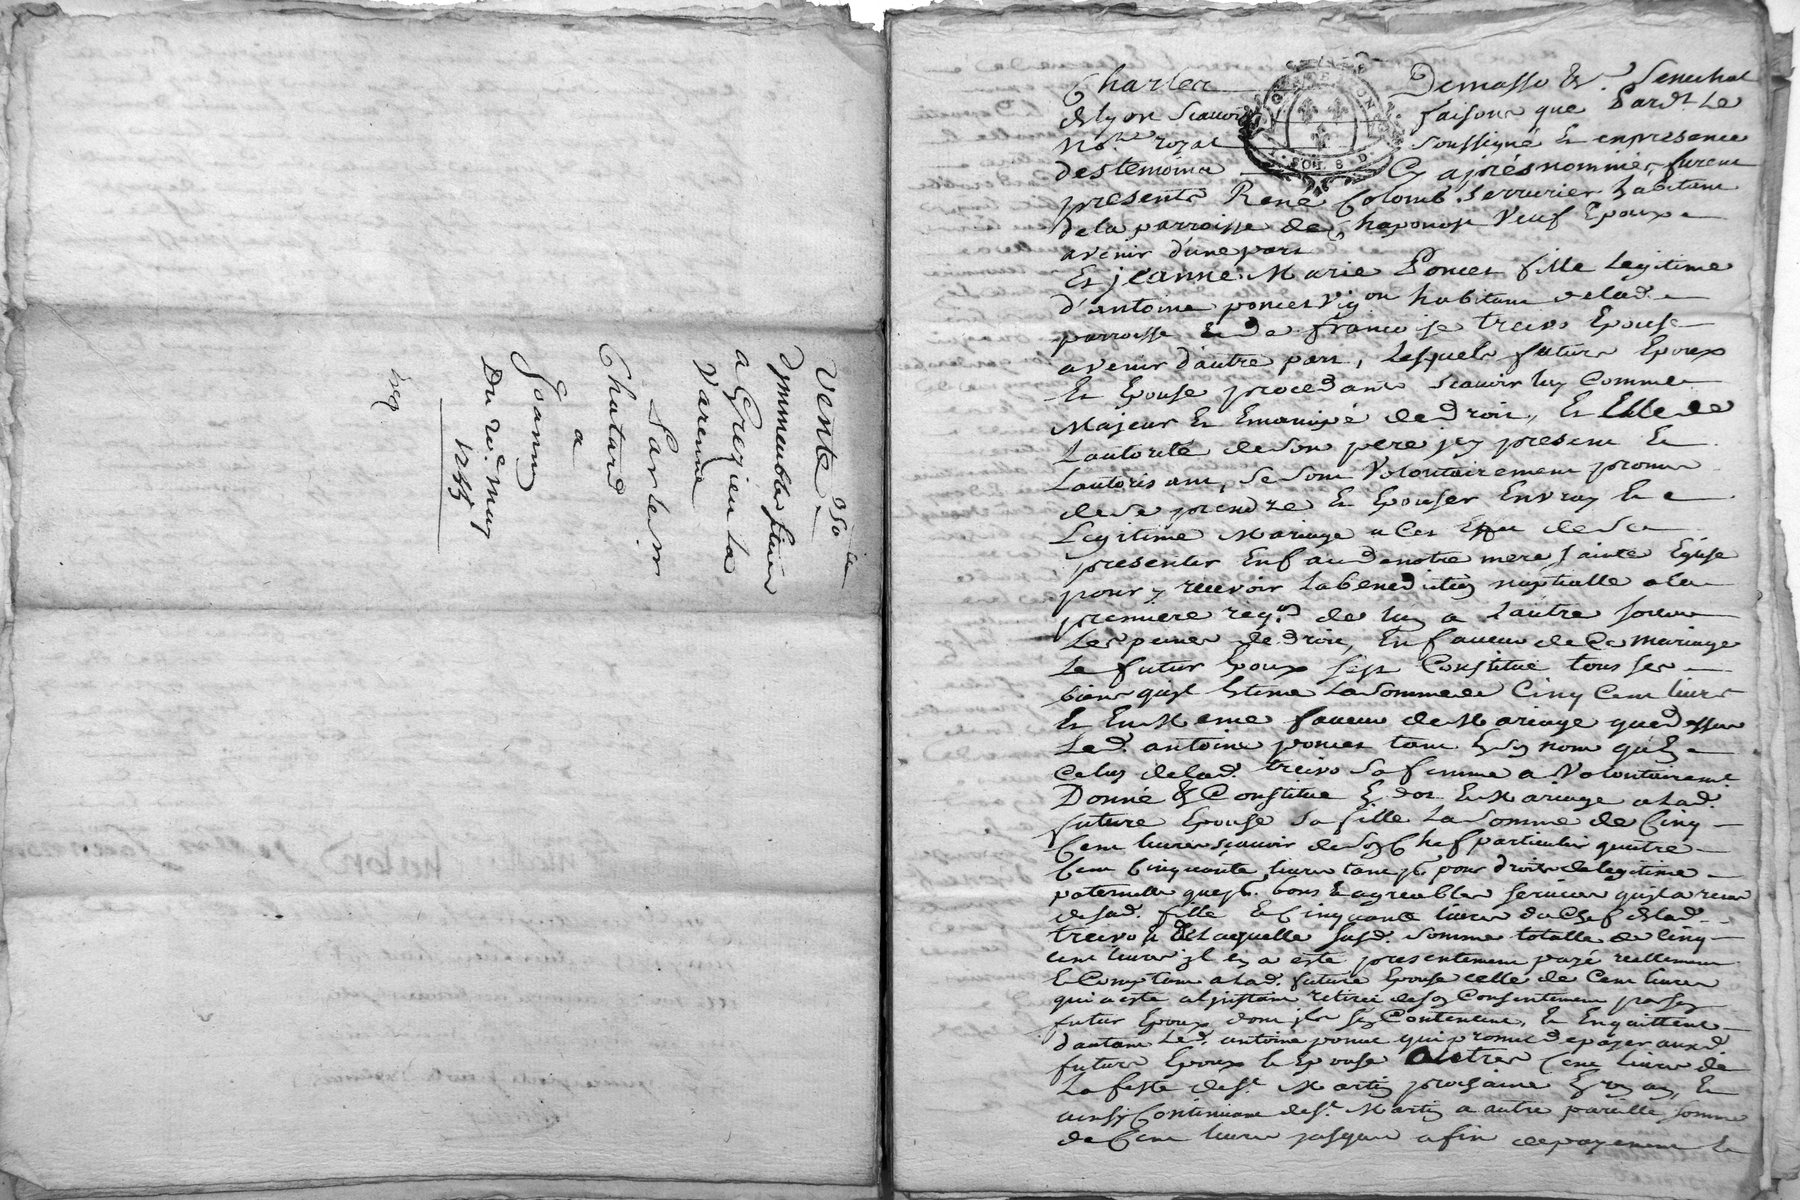 Vente 350 lt
Dimmeubles scitués
a Grezieu la
Varenne
Sarlesse
Chatard
a
Joanny
Du 20e. May
1755
exp
Charles Demasso &c. Senechal
de lyon Scavoir faisons que Pardt Le
Nore. royal soussigné Et enpresence
des temoins Cy apres nommés, furent
presents René Colomb Serrurier habitant
de la parroisse de Chaponost Veuf Epoux
avenir d'une part
Et jeanne Marie Poncet fille Legitime
d'antoine poncet Vigon habitant delad.
parroisse Et de françoise treivo Epouse
avenir d'autre part, Lesquels futurs Epoux
Et Epouse procedants scavoir luy Comme
Majeur Et Emancipé de droit, Et Elle de
Lautorité de son pere jcy present Et
Lautorisant, se sont Volontairement promis
de se prendre Et Epouser En vray Et
Legitime Mariage a Cet Effet de se
presenter En face de notre mere sainte Eglise
pour y recevoir La benediction nuptialle a la
premiere reqon. de luy a Lautre sous
Les peines de droit, En faveur de Ce mariage
Le futur Epoux sest Constitué tous ses
biens quil Estime La somme de Cinq Cent livres
Et En Meme faveur de Mariage que dessus
Led. antoine poncet tant En son nom qu'En
Celuy delad. treivo sa femme a Volontairemt.
Donné Et Constitué En dot En Mariage a lad.
future Epouse sa fille La somme de Cinq
Cent livres scavoir de son Chef particulier quatre
Cent Cinquante livres tant pr. pour droits de legitime
paternelle que pr. bons Et agreables services quil a receu
de sad. fille Et Cinquante livres du Chef de lad.
treivo Et de Laquelle susd. somme totalle de Cinq
cent livres jl En a esté presentement payé reellement
Et Comptant a lad. future Epouse celle de Cent livres
qui a esté a l'jnstant retirée de son Consentement par son
futur Epoux dont jls se Contentent, Et En quittent
d'autant Led. antoine poncet qui promet de payer auxd.
futurs Epoux Et Epouse autres Cent livres de
La feste de St. Martin prochaine En un an, Et
ainsy Continuant de St. Martin a autre pareille somme
de Cent livres jusques a fin de payement Et